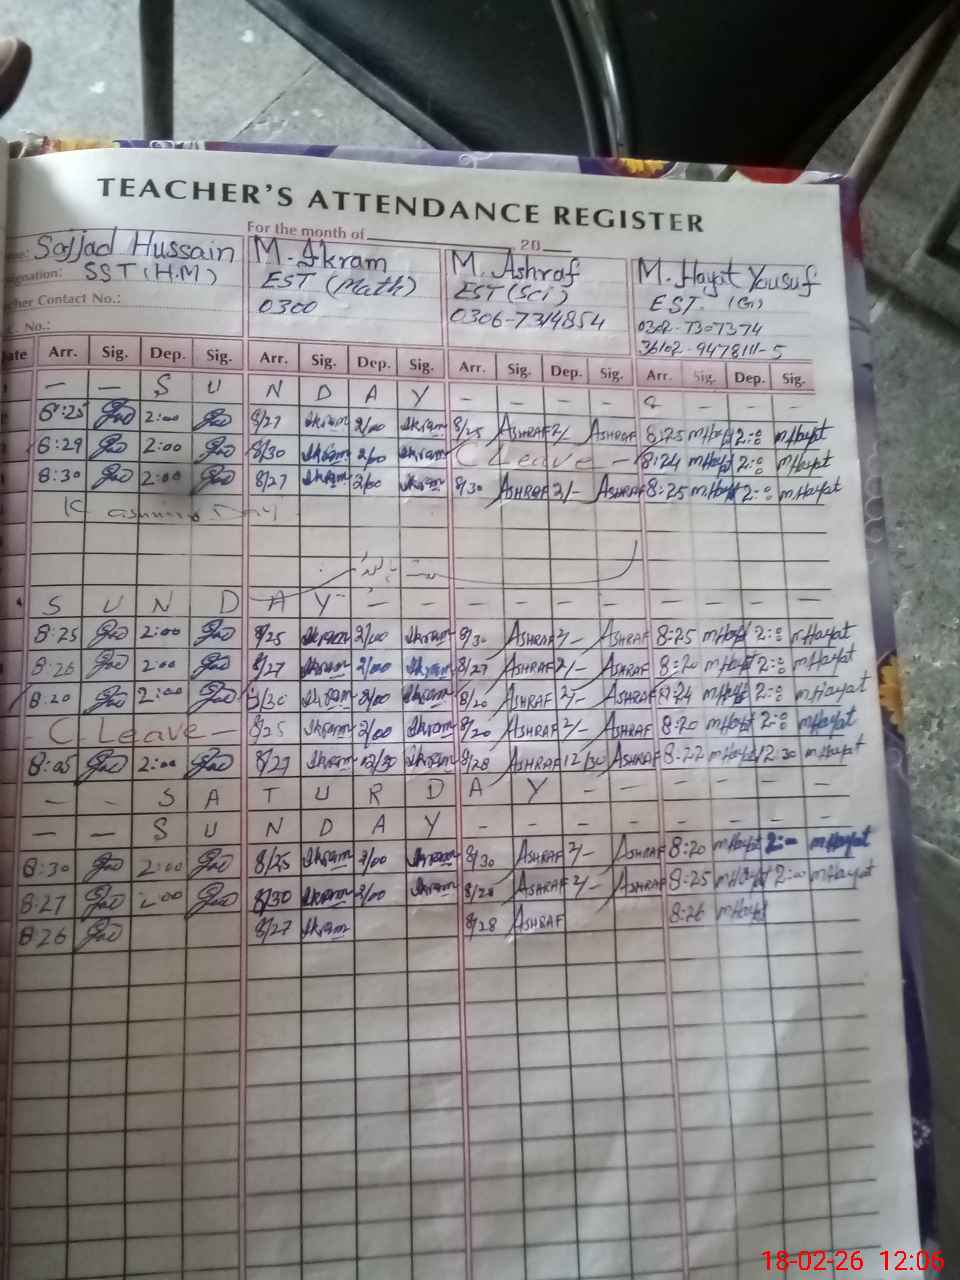 TEACHER'S ATTENDANCE REGISTER
For the month of 20
Sajjad Hussain M. Akram M. Ashraf M. Hayat Yousuf
SST (H.M) EST (Math) EST (Sci) EST.
Contact No.: 0300 0306-7314854 0302-7307374
No.: 36102-9478111-5
Arr. Sig. Dep. Sig. Arr. Sig. Dep. Sig. Arr. Sig. Dep. Sig. Arr. Sig. Dep. Sig.
— — S U N D A Y - - - - - - -
8:25 2:00 8/27 Akram 2/00 Akram 8/25 ASHRAF 2/- ASHRAF 8:25 mHayat 2:00 mHayat
8:29 2:00 8/30 Akram 2/00 Akram C Leave - 8:24 mHayat 2:00 mHayat
8:30 2:00 8/27 Akram 2/00 Akram 8/30 ASHRAF 2/- ASHRAF 8:25 mHayat 2:00 mHayat
Kashmir Day
S U N D A Y - - - - - - - - -
8:25 2:00 8/25 Akram 2/00 Akram 8/30 ASHRAF 2/- ASHRAF 8:25 mHayat 2:00 mHayat
8:26 2:00 8/27 Akram 2/00 Akram 8/27 ASHRAF 2/- ASHRAF 8:20 mHayat 2:00 mHayat
8:20 2:00 8/30 Akram 2/00 Akram 8/20 ASHRAF 2/- ASHRAF 8:24 mHayat 2:00 mHayat
C Leave - 8/25 Akram 2/00 Akram 8/20 ASHRAF 2/- ASHRAF 8:20 mHayat 2:00 mHayat
8:05 2:00 8/27 Akram 12/30 Akram 8/28 ASHRAF 12/30 ASHRAF 8:22 mHayat 12:30 mHayat
- - S A T U R D A Y - - - - - -
— — S U N D A Y - - - - - - - -
8:30 2:00 8/25 Akram 2/00 Akram 8/30 ASHRAF 2/- ASHRAF 8:20 mHayat 2:00 mHayat
8:27 2:00 8/30 Akram 2/00 Akram 8/28 ASHRAF 2/- ASHRAF 8:25 mHayat 2:00 mHayat
8:26 8/27 Akram 8/28 ASHRAF 8:26 mHayat
18-02-26 12:06